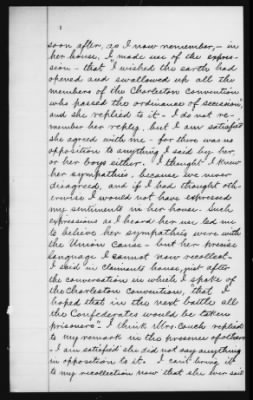 soon after, as I now remember, - in
her house, I made use of the expres-
sion - that I wished the earth had
opened and swallowed up all the
members of the Charleston Convention
who passed the ordinance of secession",
and she replied to it - I do not re-
member her reply, but I am satisfied
she agreed with me - for there was no
opposition to anything I said by her,
or her boys either. I thought I knew
her sympathies, because we never
disagreed, and if I had thought oth-
erwise I would not have expressed
my sentiments in her house. Such
expressions as I heard her use led me
to believe her sympathies were with
the Union Cause - but her precise
language I cannot now recollect.
I said in claimants house, just after
the conversation in which I spoke of
the Charleston Convention, "that I
hoped that in the next battle all
the Confederates would be taken
prisoners". I think Mrs. Couch replied
to my remark in the presence of others
- I am satisfied she did not say anything
in opposition to it. I can't bring it
to my recollection now that she ever said